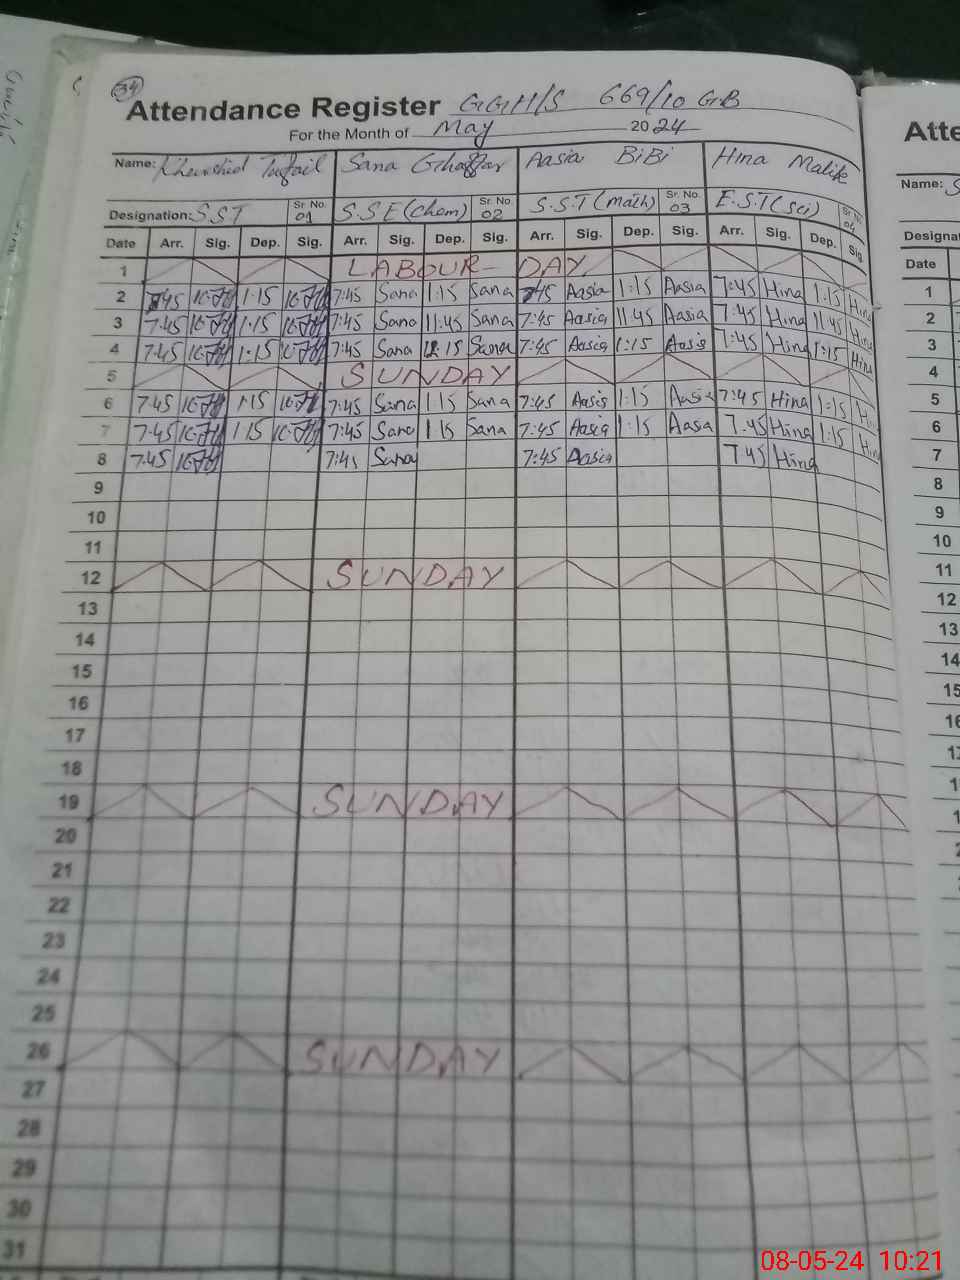 34
Attendance Register GGH/S 669/10 GB
For the Month of May 2024
Name: Khurshid Tufail Sana Ghaffar Aasia BiBi Hina Malik
Designation: S.S.T Sr. No. 01 S.S.E (Chem) Sr. No. 02 S.S.T (math) Sr. No. 03 E.S.T (sci) Sr. No. 04
Date Arr. Sig. Dep. Sig. Arr. Sig. Dep. Sig. Arr. Sig. Dep. Sig. Arr. Sig. Dep. Sig.
1 LABOUR DAY
2 7:45 1:15 7:45 Sana 1:15 Sana 7:45 Aasia 1:15 Aasia 7:45 Hina 1:15 Hina
3 7:45 1:15 7:45 Sana 11:45 Sana 7:45 Aasia 11:45 Aasia 7:45 Hina 11:45 Hina
4 7:45 1:15 7:45 Sana 12:15 Sana 7:45 Aasia 1:15 Aasia 7:45 Hina 1:15 Hina
5 SUNDAY
6 7:45 1:15 7:45 Sana 1:15 Sana 7:45 Aasia 1:15 Aasia 7:45 Hina 1:15 Hina
7 7:45 1:15 7:45 Sana 1:15 Sana 7:45 Aasia 1:15 Aasia 7:45 Hina 1:15 Hina
8 7:45 7:45 Sana 7:45 Aasia 7:45 Hina
9
10
11
12 SUNDAY
13
14
15
16
17
18
19 SUNDAY
20
21
22
23
24
25
26 SUNDAY
27
28
29
30
31
Atte
Name:
Designa
Date
1
2
3
4
5
6
7
8
9
10
11
12
13
14
15
16
08-05-24 10:21